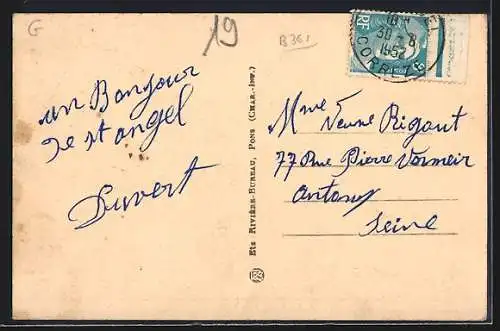 G
19
B361
RF
18 H
30 - 8
1952
CORREZE
un Bonjour
de St angel
Duvert
Ets RIVIÈRE-BUREAU, PONS (CHAR.-INF.)
Mme Veuve Rigout
77 Rue Pierre Vermeir
Antony
Seine